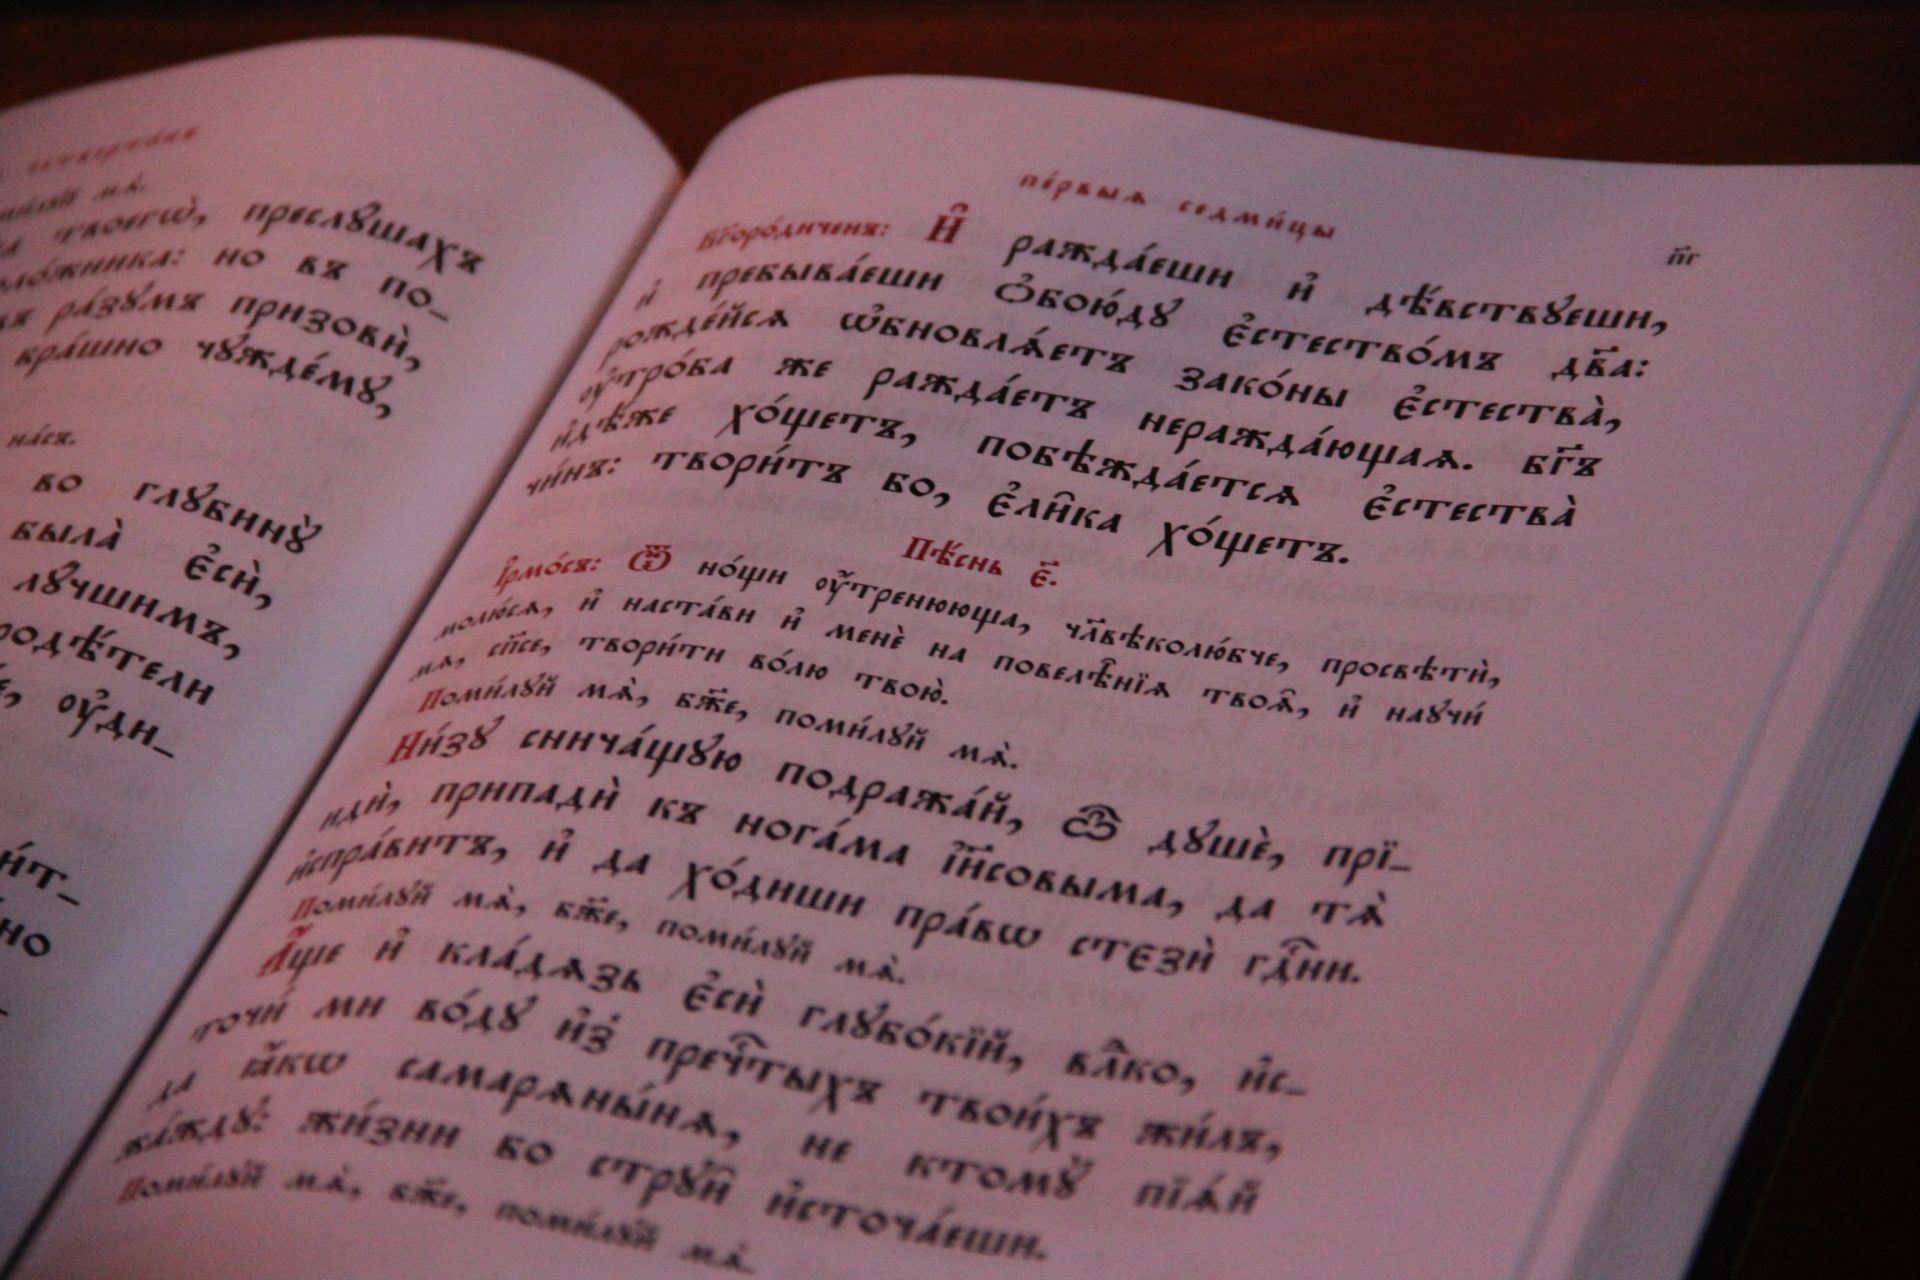 твоегѡ̀, преслꙋ́шахъ
ло́жника: но въ по_
ра́зꙋмъ призовѝ,
кра́шно чꙋжде́мꙋ,
на́съ.
во глꙋбинꙋ̀
была̀ є҆сѝ,
лꙋ́чшимъ,
оу҆ди_
пе́рвыѧ седми́цы
п҃г
Бг҃оро́диченъ: И҆̑ ражда́еши и҆ дѣ́вствꙋеши,
и҆ пребыва́еши ѻ҆бою́дꙋ є҆стество́мъ дв҃а:
рожде́йсѧ ѡ҆бновлѧ́етъ зако́ны є҆стества̀,
оу҆тро́ба же ражда́етъ неражда́ющаѧ. бг҃ъ
и҆дѣ́же хо́щетъ, побѣжда́етсѧ є҆стества̀
чи́нъ: твори́тъ бо, є҆ли̑ка хо́щетъ.
Пѣ́снь є҃.
І҆рмо́съ: Ѿ но́щи оу҆́тренююща, чл҃вѣколю́бче, просвѣтѝ,
молю́сѧ, и҆ наста́ви и҆ менѐ на повелѣ̑нїѧ твоѧ̑, и҆ научи́
мѧ, сп҃се, твори́ти во́лю твою̀.
Поми́лꙋй мѧ̀, бж҃е, поми́лꙋй мѧ̀.
Ни́зꙋ сnича́щꙋю подража́й, ѽ дꙋшѐ, прї_
идѝ, припадѝ къ нога́ма і҆и҃совыма, да тѧ̀
и҆спра́витъ, и҆ да хо́диши пра́вѡ стєзѝ гдⷭ҇ни.
Поми́лꙋй мѧ̀, бж҃е, поми́лꙋй мѧ̀.
А҆́ще и҆ кла́дѧзь є҆сѝ глꙋбо́кїй, вл҃ко, и҆с_
точи́ ми во́дꙋ и҆з̾ пречⷭ҇тыхъ твои́хъ жи́лъ,
да ꙗ҆́кѡ самарѧны́нѧ, не ктомꙋ̀ пїѧ́й
жа́ждꙋ: жи́зни бо стрꙋи̑ и҆сточа́еши.
Поми́лꙋй мѧ̀, бж҃е, поми́лꙋй мѧ̀.